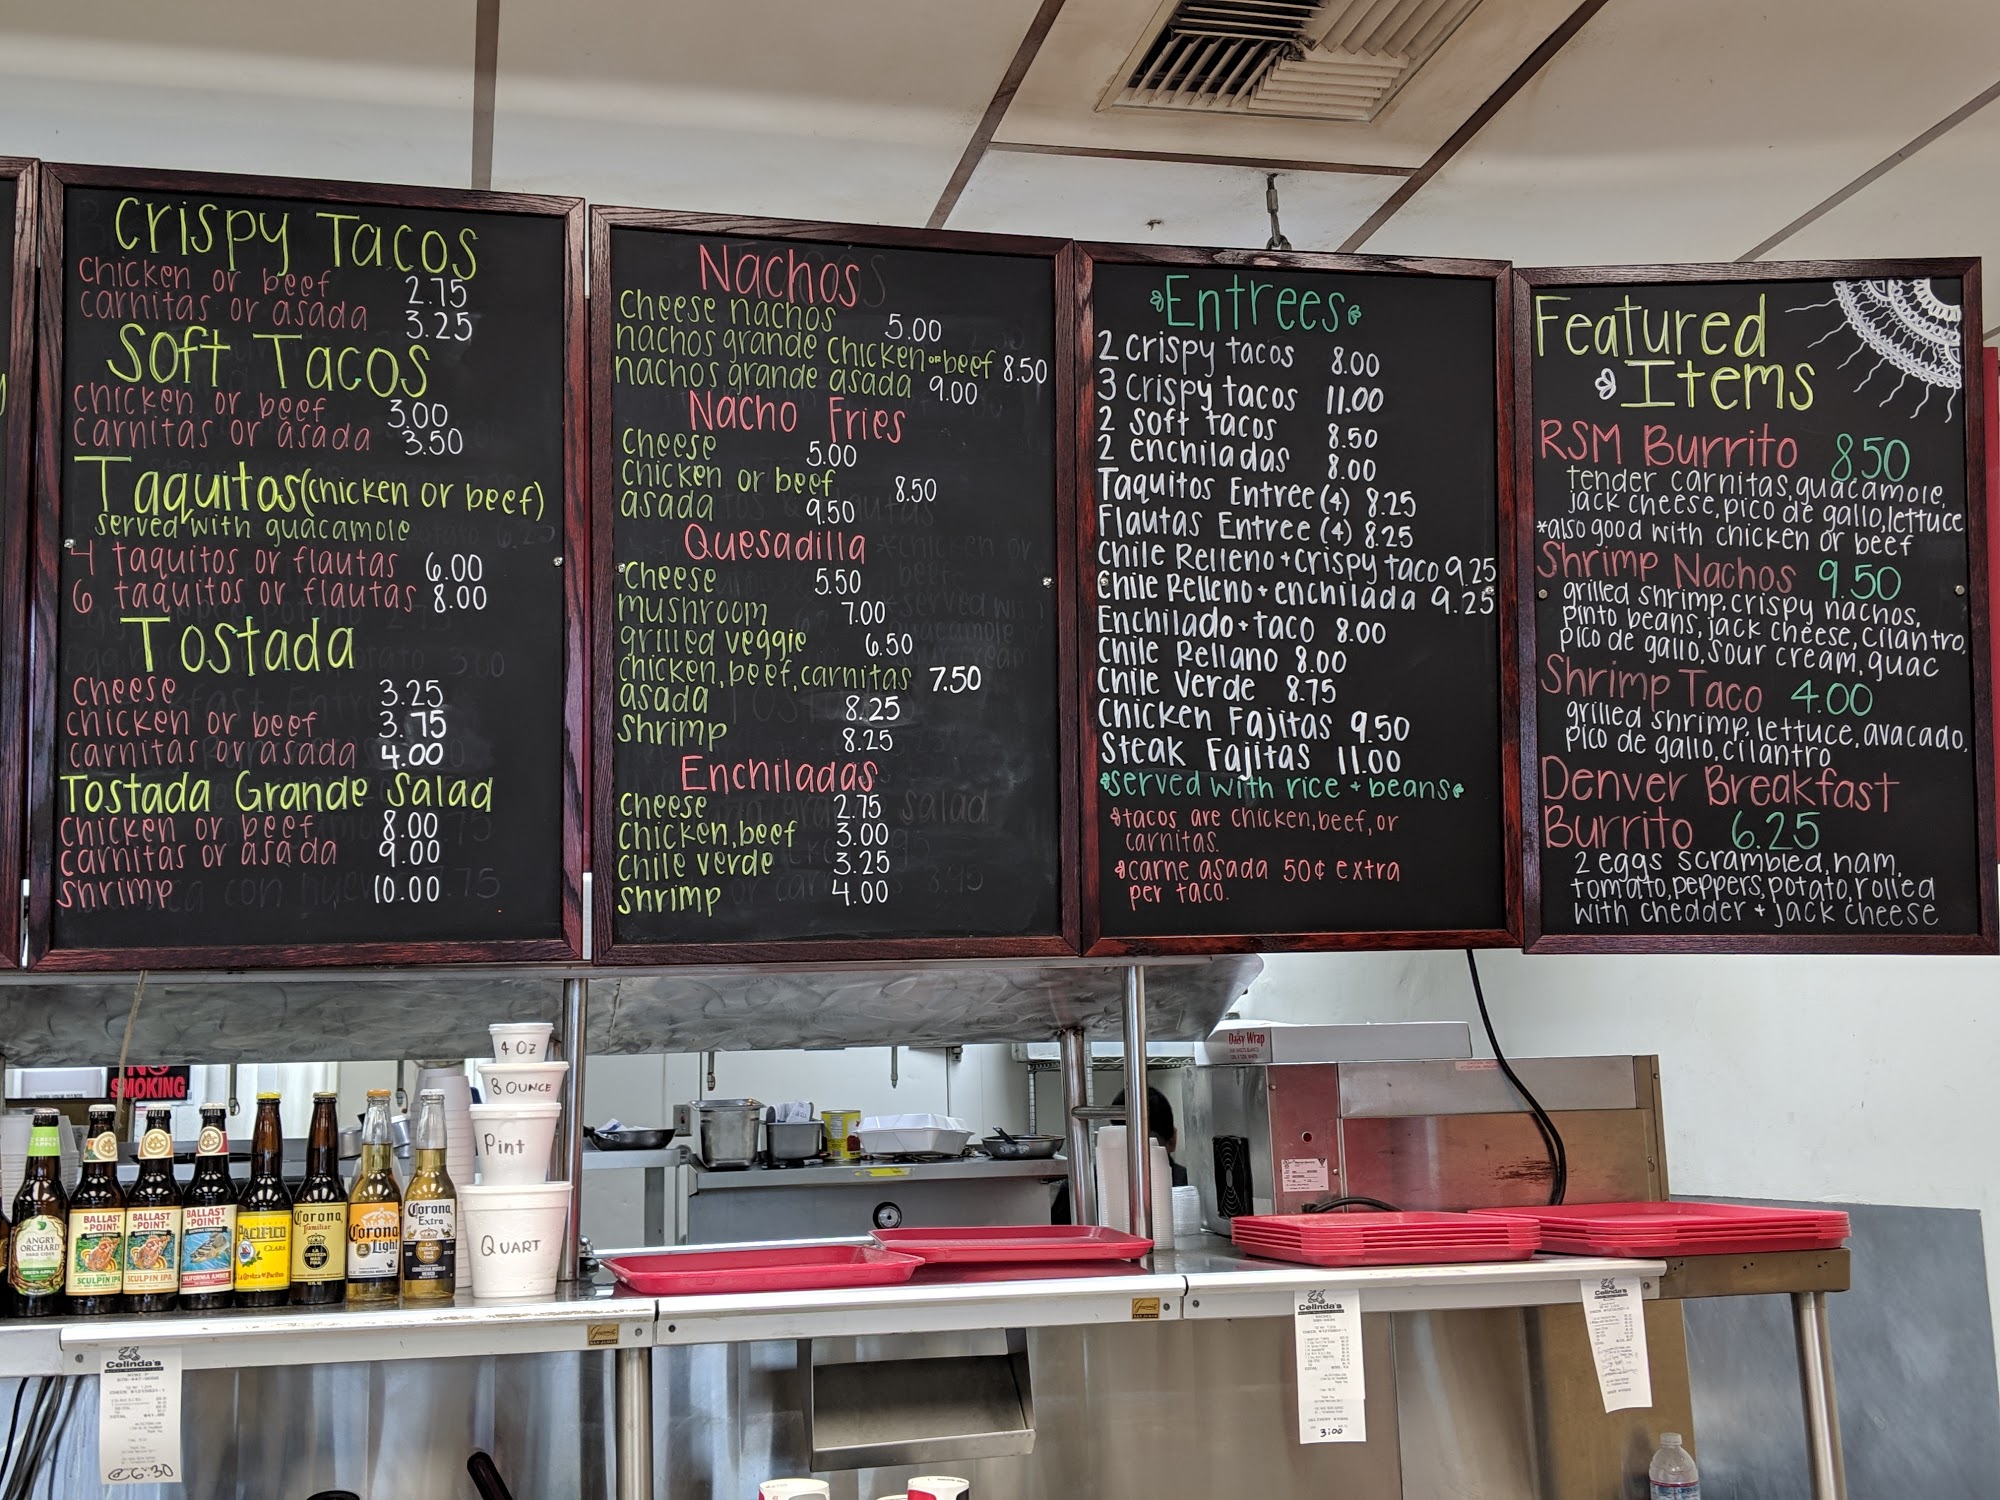 Crispy Tacos
chicken or beef 2.75
carnitas or asada 3.25
Soft Tacos
chicken or beef 3.00
carnitas or asada 3.50
Taquitos (chicken or beef)
served with guacamole
4 taquitos or flautas 6.00
6 taquitos or flautas 8.00
Tostada
cheese 3.25
chicken or beef 3.75
carnitas or asada 4.00
Tostada Grande Salad
chicken or beef 8.00
carnitas or asada 9.00
shrimp 10.00
Nachos
cheese nachos 5.00
nachos grande chicken or beef 8.50
nachos grande asada 9.00
Nacho Fries
cheese 5.00
chicken or beef 8.50
asada 9.50
Quesadilla
cheese 5.50
mushroom 7.00
grilled veggie 6.50
chicken, beef, carnitas 7.50
asada 8.25
shrimp 8.25
Enchiladas
cheese 2.75
chicken, beef 3.00
chile verde 3.25
shrimp 4.00
Entrees
2 crispy tacos 8.00
3 crispy tacos 11.00
2 soft tacos 8.50
2 enchiladas 8.00
Taquitos Entree (4) 8.25
Flautas Entree (4) 8.25
Chile Relleno + crispy taco 9.25
Chile Relleno + enchilada 9.25
Enchilado + taco 8.00
Chile Rellano 8.00
Chile Verde 8.75
Chicken Fajitas 9.50
Steak Fajitas 11.00
served with rice + beans
tacos are chicken, beef, or
carnitas.
carne asada 50¢ extra
per taco.
Featured
Items
RSM Burrito 8.50
tender carnitas, guacamole,
jack cheese, pico de gallo, lettuce
*also good with chicken or beef
Shrimp Nachos 9.50
grilled shrimp, crispy nachos,
pinto beans, jack cheese, cilantro,
pico de gallo, sour cream, guac
Shrimp Taco 4.00
grilled shrimp, lettuce, avacado,
pico de gallo, cilantro
Denver Breakfast
Burrito 6.25
2 eggs scrambled, ham,
tomato, peppers, potato, rolled
with chedder + jack cheese
NO
SMOKING
4 OZ
8 OUNCE
Pint
QUART
Daisy Wrap
ANGRY
ORCHARD
BALLAST
POINT
SCULPIN IPA
BALLAST
POINT
SCULPIN IPA
BALLAST
POINT
CALIFORNIA AMBER
PACIFICO
CLARA
Corona
Familiar
Corona
Light
Corona
Extra
Celinda's
@6:30
Celinda's
3:00
Celinda's